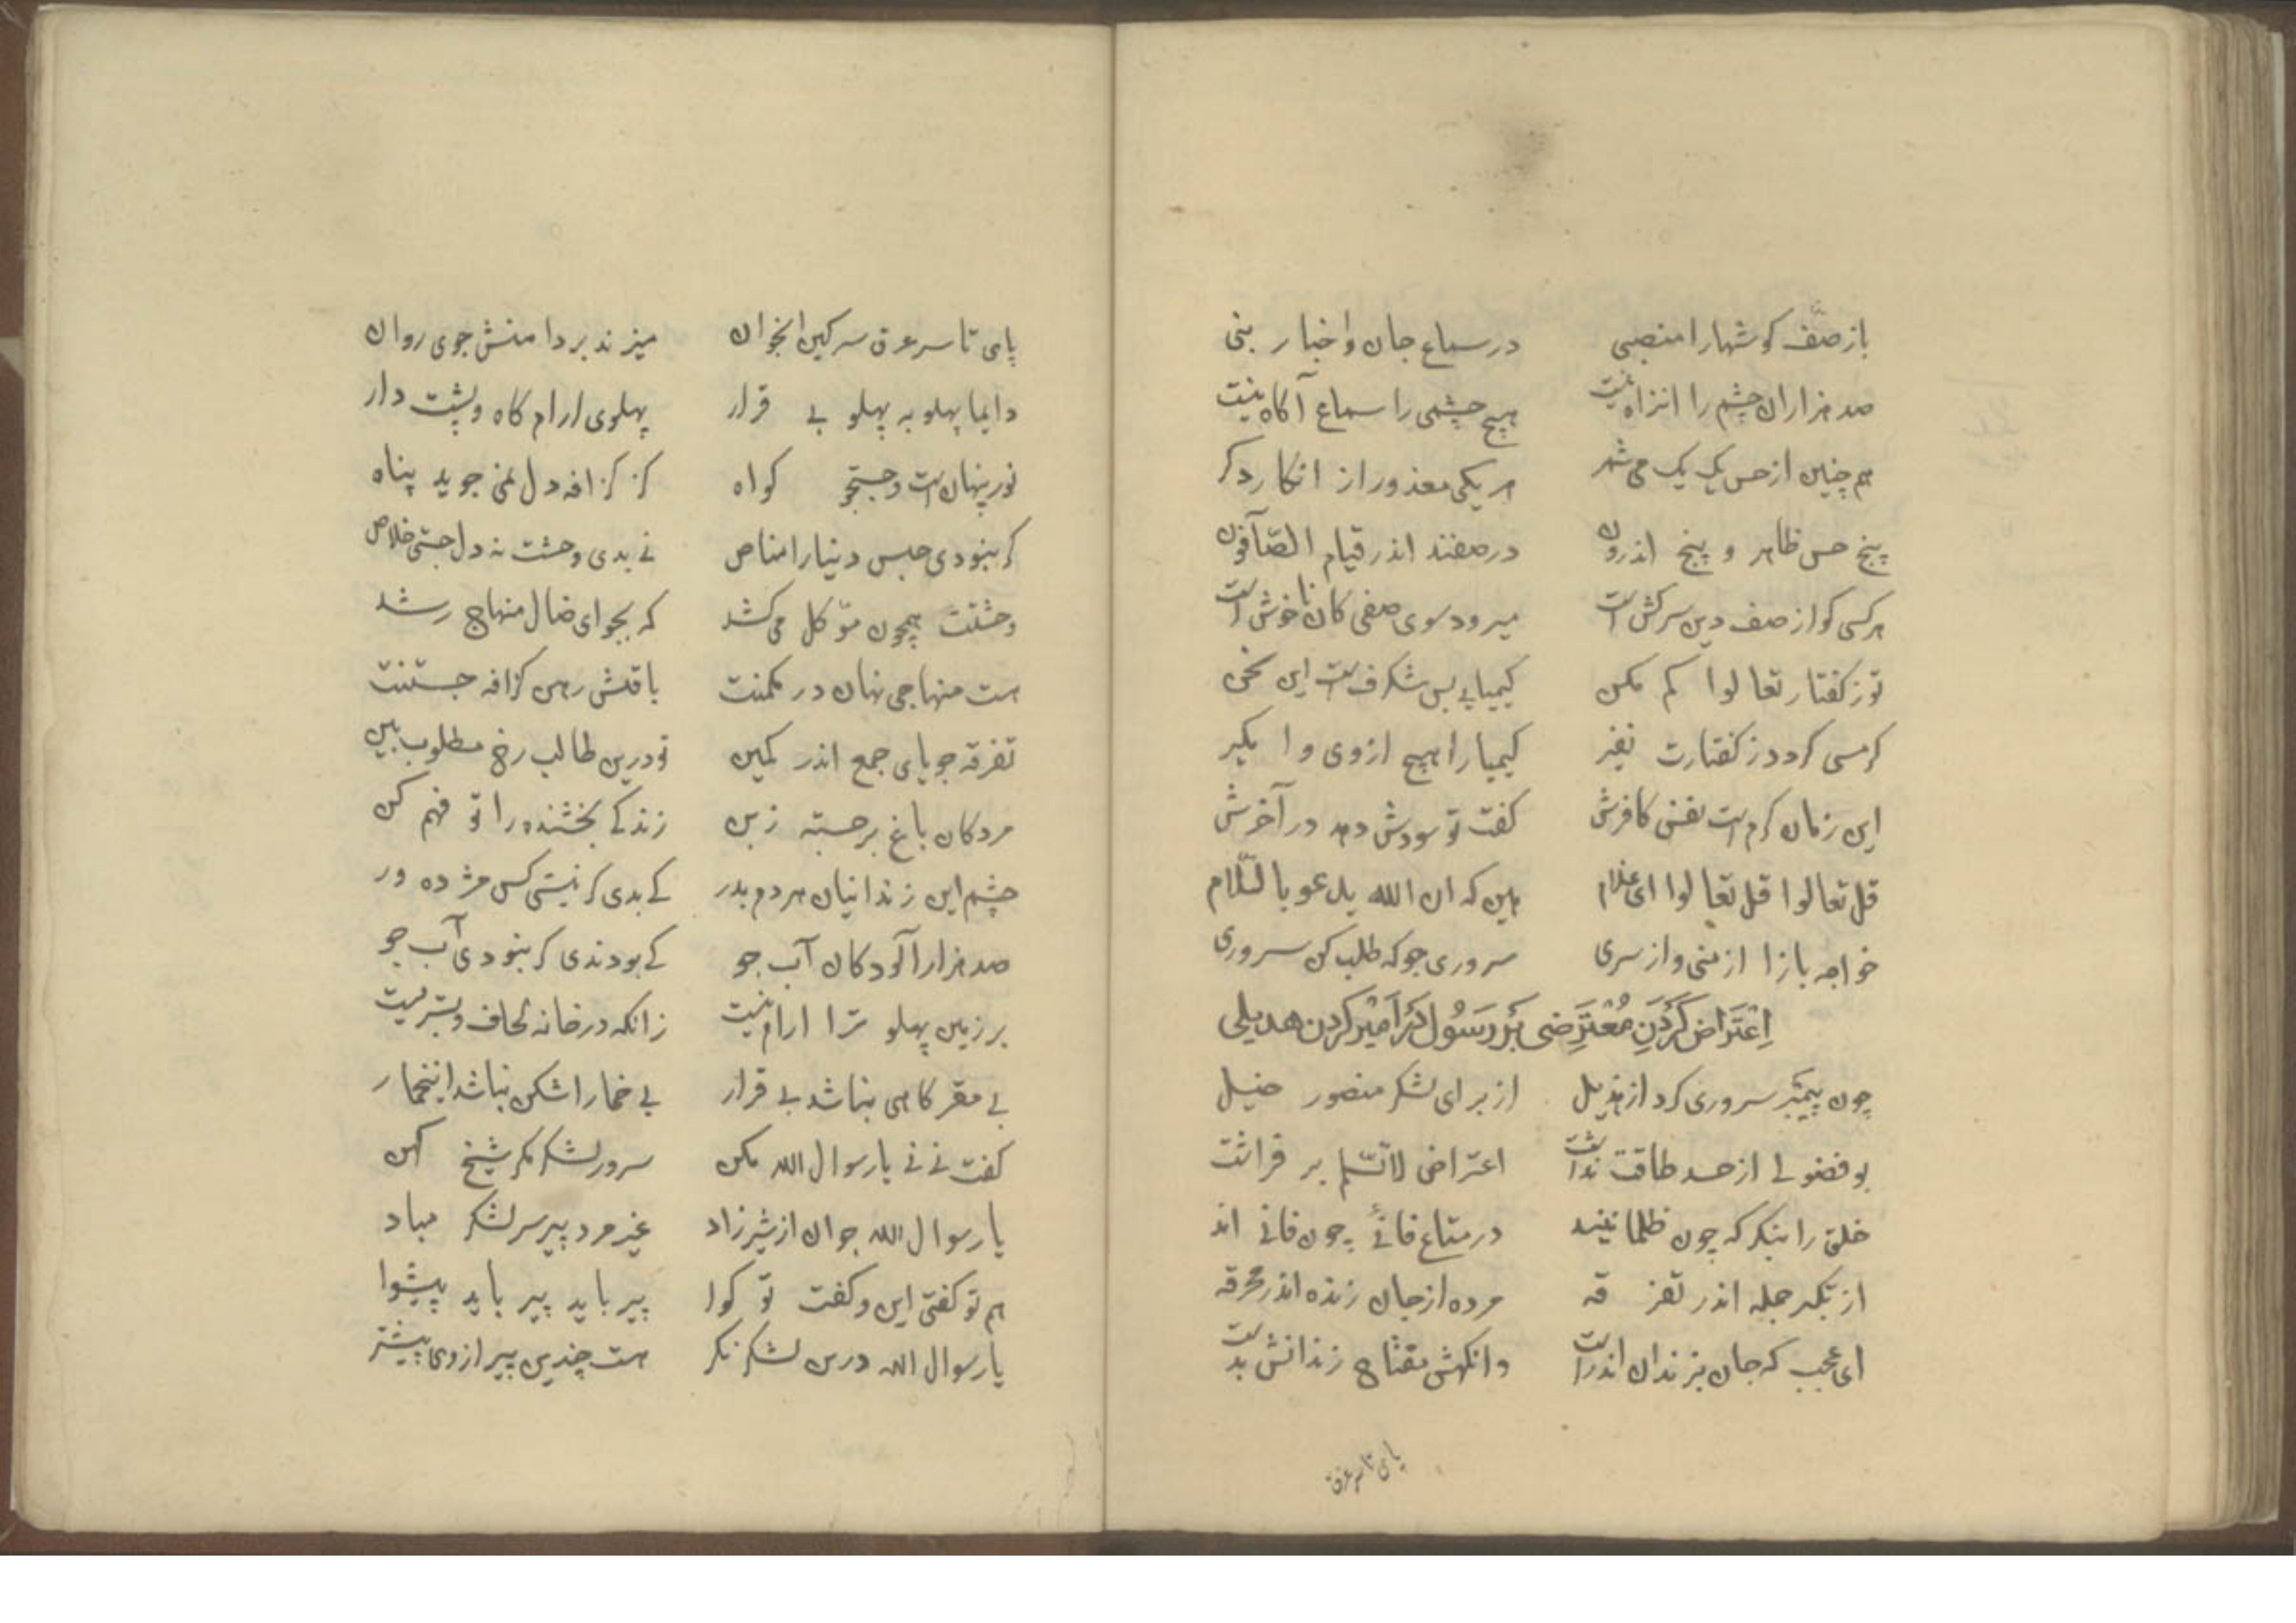 باز صف گوشها را منصبی در سماع جان و اخبار بنی
صد هزاران چشم را انراه نیست هیچ چشمی را سماع آگاه نیست
هم چنین از حس یک یک می شمر هر یکی معذور از انکار دکر
پنج حس ظاهر و پنج اندرون در صفند اندر قیام الصّآفون
هر کسی کو از صف دین سرکش است میرود سوی صفی کان ناخوش است
تو ز کفتار تعالوا کم مکن کیمیایی بس شکرف است این سخن
کر مسی کردد ز کفتارت نفیر کیمیا را هیچ ازوی وا مکیر
این زمان کرم است نفس کافرش کفت تو سودش دهد در آخرش
قل تعالوا قل تعالوا ای غلام هین که ان الله یدعو بالسّلام
خواجه بازا از منی و از سری سروری جو که طلب کن سروری
اِعْتَراض کَرْدَنِ مُعْتَرِضی بَر رَسُول دَر اَمیر کردن هذیلی
چون پیمبر سروری کرد از هذیل از برای لشکر منصور خیل
بو فضولی از حسد طاقت نداشت اعتراض لانسّلم بر فراشت
خلق را بنکر که چون ظلمانیند در متاع فانئ چون فانی اند
از تکبر جمله اندر تفرقه مرده از جان زنده اندر مخرقه
ای عجب که جان بزندان اندر است وانکهش مفتاح زندانش بدست
پای تا سر غرق
پای تا سر غرق سرکین انجوان میزند بر دامنش جوی روان
دایما پهلو به پهلو بی قرار پهلوی ارام کاه و پشت دار
نور پنهان است و جستجو کواه کز کزافه دل نمی جوید پناه
کر نبودی حبس دنیا را مناص نی بدی وحشت نه دل جستی خلاص
وحشتت همچون موّکل می کشد که بجو ای ضال منهاج رشد
هست منهاجی نهان در مکمنت یافتش رهن کزافه جستنت
تفرقه جویای جمع اندر کمین تو درین طالب رخ مطلوب بین
مردکان باغ برجسته ز بن زندکی بخشنده را تو فهم کن
چشم این زندانیان هر دم بدر کی بدی کر نیستی کس مژده ور
صد هزار آلودکان آب جو کی بودندی کر نبودی آب جو
بر زمین پهلو ترا ارام نیست زانکه در خانه لحاف و بستریست
بی مقر کاهی نباشد بی قرار بی خمار اشکن نباشد این خمار
کفت نی نی یا رسوال الله مکن سرور لشکر مکر شیخ کهن
یا رسوال الله جوان ار شیر زاد غیر مرد پیر سر لشکر مباد
هم تو کفتی این و کفت تو کوا پیر باید پیر باید پیشوا
یا رسوال الله درین لشکر نکر هست چندین پیر ازوی پیشتر